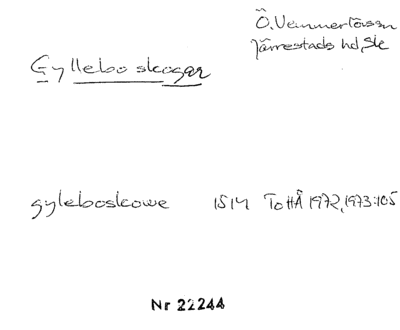 Ö. Vemmerlövs sn
Järrestads hd, Sk
Gyllebo skogar
gyleboskowe 1514 ToHÅ 1972, 1973:105
Nr 22244